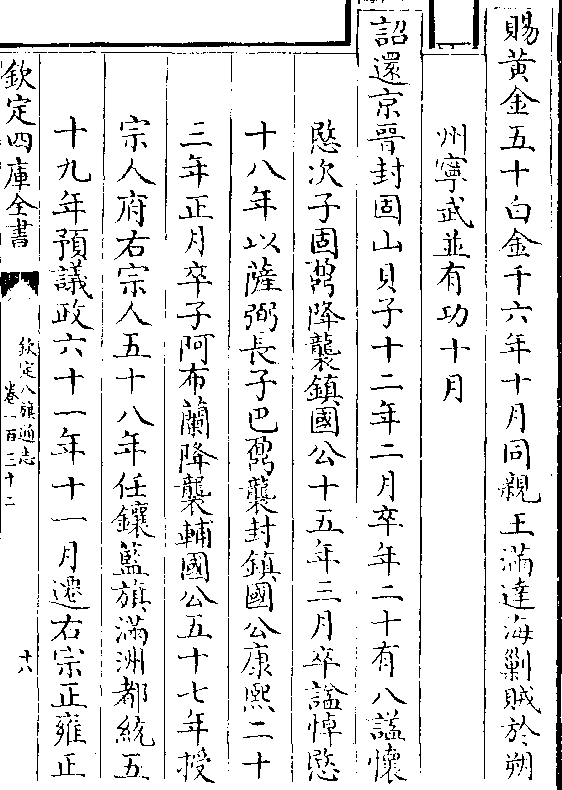 賜黄金五十白金千六年十月同親王滿達海剿賊於朔
州寧武並有功十月
詔還京晉封固山貝子十二年二月卒年二十有八諡懷
愍次子固鼐降襲鎮國公十五年三月卒諡悼愍
十八年以薩弼長子巴鼐襲封鎮國公康熙二十
三年正月卒子阿布蘭降襲輔國公五十七年授
宗人府右宗人五十八年任鑲藍旗滿洲都統五
十九年預議政六十一年十一月遷右宗正雍正
欽定四庫全書
欽定八旗通志
卷一百三十二
十八